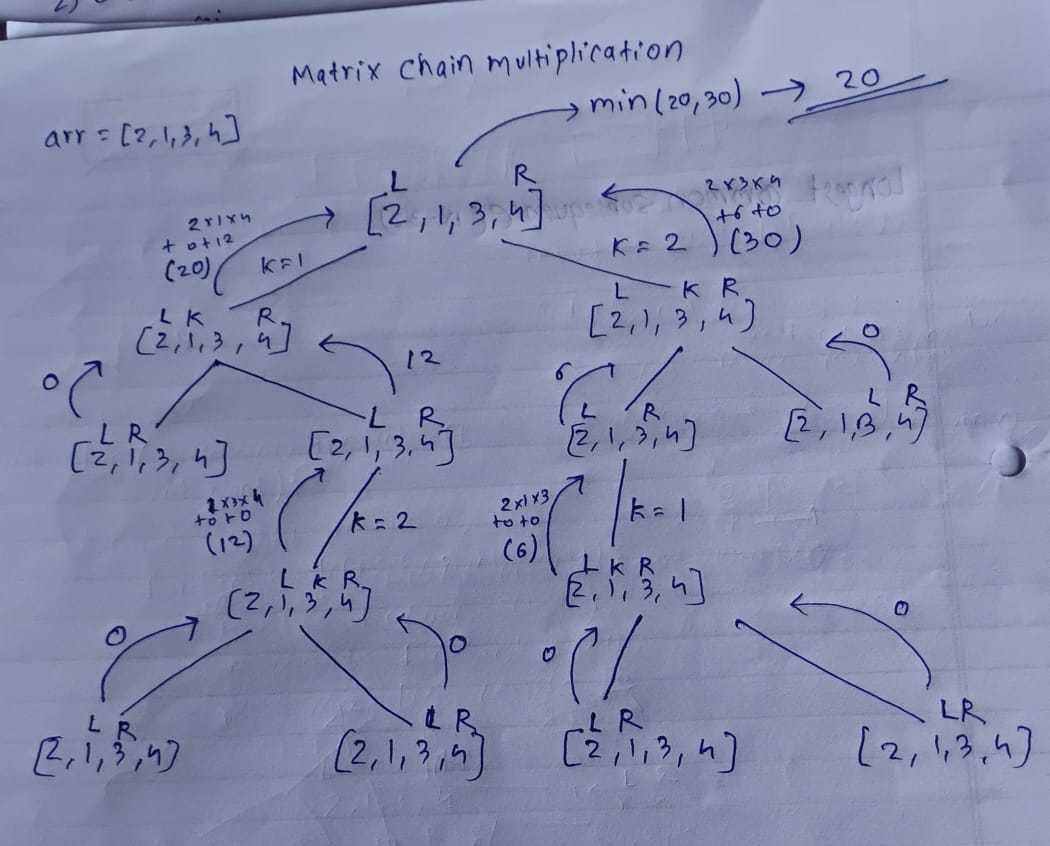 Matrix chain multiplication
min (20,30) → 20
arr = [2,1,3,4]
L R
[2, 1, 3, 4]
2x1x4
+ 0+12
(20)
K=1
2x3x4
+6 +0
(30)
K = 2
L K R
[2,1,3, 4]
L K R
[2,1, 3, 4]
0
12
6
0
L R
[2, 1, 3, 4]
L R
[2, 1, 3, 4]
L R
[2, 1, 3, 4]
L R
[2, 1, 3, 4]
1x3x4
+0 +0
(12)
K = 2
2x1x3
+0 +0
(6)
K = 1
L K R
[2, 1, 3, 4]
L K R
[2, 1, 3, 4]
0
0
0
0
L R
[2, 1, 3, 4]
L R
[2, 1, 3, 4]
L R
[2, 1, 3, 4]
L R
[2, 1, 3, 4]